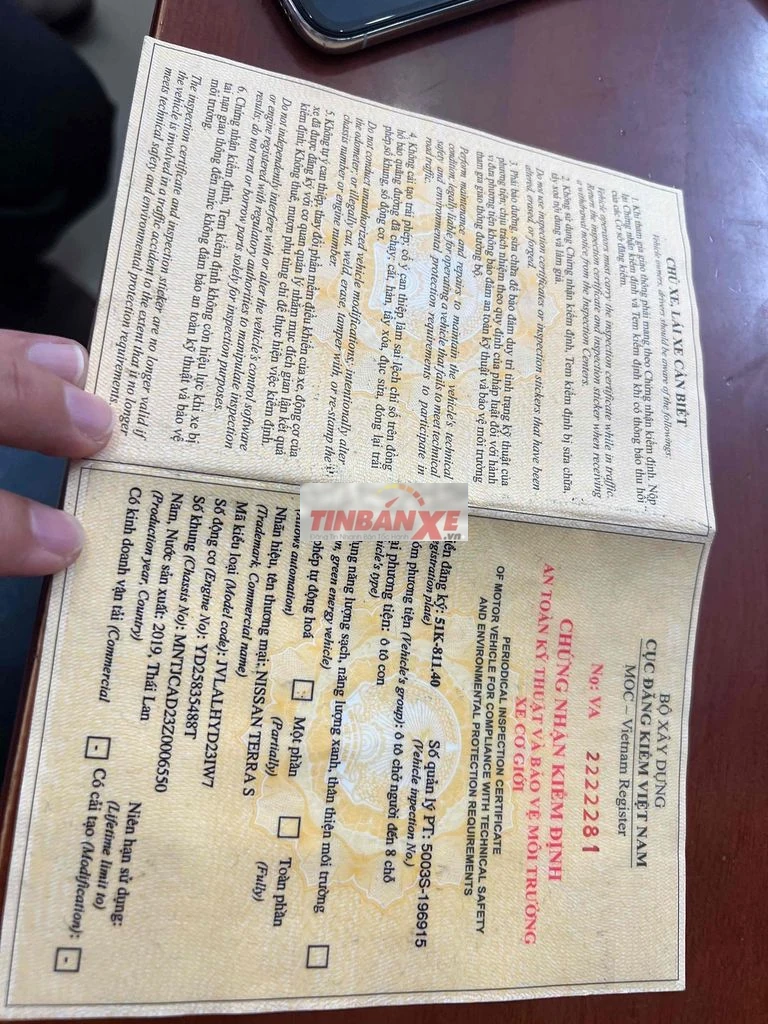 CHỦ XE, LÁI XE CẦN BIẾT
Vehicle owners, drivers should be aware of the followings:
1. Khi tham gia giao thông phải mang theo Chứng nhận kiểm định. Nộp
lại Chứng nhận kiểm định và Tem kiểm định khi có thông báo thu hồi
của các Cơ sở đăng kiểm.
Vehicle operators must carry the inspection certificate while in traffic.
Return the inspection certificate and inspection sticker when receiving
a withdrawal notice from the Inspection Centers.
2. Không sử dụng Chứng nhận kiểm định, Tem kiểm định bị sửa chữa,
tẩy xoá nội dung và làm giả.
Do not use inspection certificates or inspection stickers that have been
altered, erased, or forged.
3. Phải bảo dưỡng, sửa chữa để bảo đảm duy trì tình trạng kỹ thuật của
phương tiện; chịu trách nhiệm theo quy định của pháp luật đối với hành
vi đưa phương tiện không bảo đảm an toàn kỹ thuật và bảo vệ môi trường
tham gia giao thông đường bộ.
Perform maintenance and repairs to maintain the vehicle's technical
condition; legally liable for operating a vehicle that fails to meet technical
safety and environmental protection requirements to participate in
road traffic.
4. Không cải tạo trái phép; cố ý can thiệp làm sai lệch chỉ số trên đồng
hồ báo quãng đường đã chạy; cắt, hàn, tẩy xóa, đục sửa, đóng lại trái
phép số khung, số động cơ.
Do not conduct unauthorized vehicle modifications; intentionally alter
the odometer; or illegally cut, weld, erase, tamper with, or re-stamp the
chassis number or engine number.
5. Không tự ý can thiệp, thay đổi phần mềm điều khiển của xe, động cơ của
xe đã được đăng ký với cơ quan quản lý nhằm mục đích gian lận kết quả
kiểm định; Không thuê, mượn phụ tùng chỉ để thực hiện việc kiểm định.
Do not independently interfere with or alter the vehicle's control software
or engine registered with regulatory authorities to manipulate inspection
results; do not rent or borrow parts solely for inspection purposes.
6. Chứng nhận kiểm định, Tem kiểm định không còn hiệu lực khi xe bị
tai nạn giao thông đến mức không đảm bảo an toàn kỹ thuật và bảo vệ
môi trường.
The inspection certificate and inspection sticker are no longer valid if
the vehicle is involved in a traffic accident to the extent that it no longer
meets technical safety and environmental protection requirements.
BỘ XÂY DỰNG
CỤC ĐĂNG KIỂM VIỆT NAM
MOC – Vietnam Register
No: VA 2222281
CHỨNG NHẬN KIỂM ĐỊNH
AN TOÀN KỸ THUẬT VÀ BẢO VỆ MÔI TRƯỜNG
XE CƠ GIỚI
PERIODICAL INSPECTION CERTIFICATE
OF MOTOR VEHICLE FOR COMPLIANCE WITH TECHNICAL SAFETY
AND ENVIRONMENTAL PROTECTION REQUIREMENTS
đăng ký: 51K-811.40 Số quản lý PT: 5003S-196915
plate) (Vehicle inpection No.)
phương tiện (Vehicle's group): ô tô chở người đến 8 chỗ
phương tiện: ô tô con
type)
dụng năng lượng sạch, năng lượng xanh, thân thiện môi trường
green energy vehicle)
phép tự động hoá Một phần Toàn phần
automation) (Partially) (Fully)
Nhãn hiệu, tên thương mại: NISSAN TERRA S
(Trademark, Commercial name)
Mã kiểu loại (Model code): JVLALHYD23IW7
Số động cơ (Engine No): YD25835488T
Số khung (Chassis No): MNTJCAD23Z0006550
Năm, Nước sản xuất: 2019, Thái Lan Niên hạn sử dụng:
(Production year, Country) (Lifetime limit to)
Có kinh doanh vận tải (Commercial - Có cải tạo (Modification): -
TINBANXE.vn